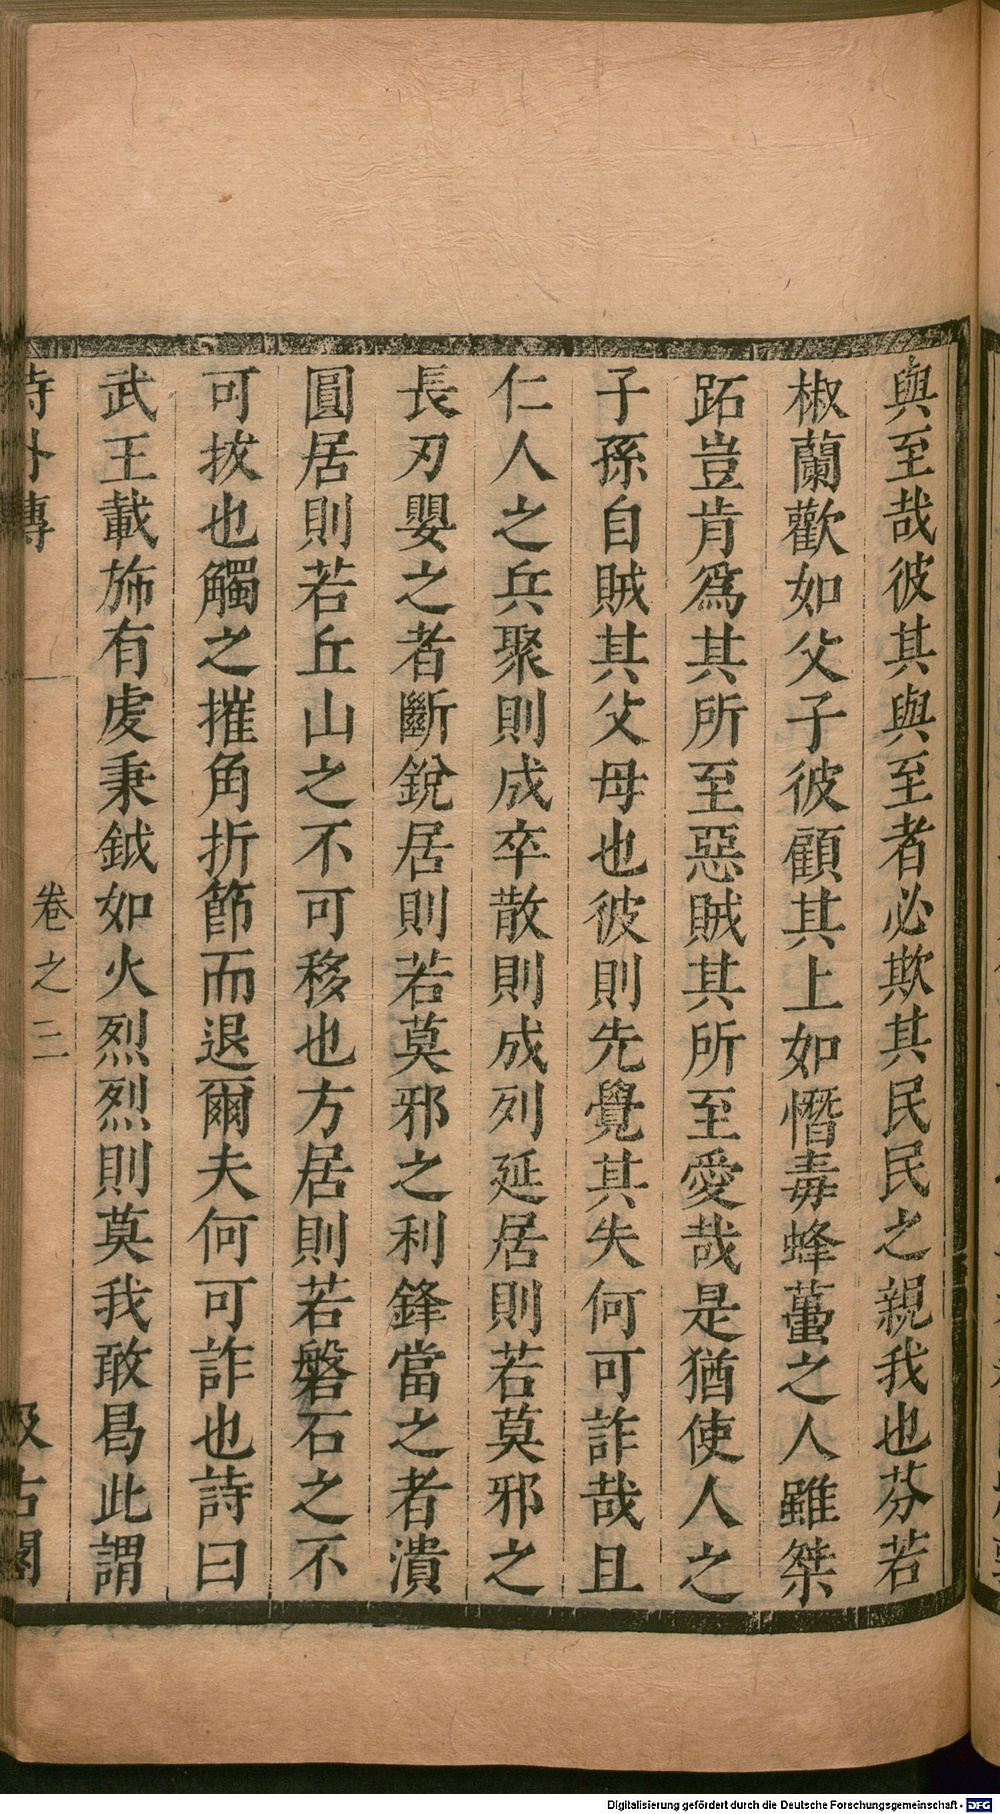 與至哉彼其與至者必欺其民民之親我也芬若
椒蘭歡如父子彼顧其上如憯毒蜂蠆之人雖桀
跖豈肯爲其所至惡賊其所至愛哉是猶使人之
子孫自賊其父母也彼則先覺其失何可詐哉且
仁人之兵聚則成卒散則成列延居則若莫邪之
長刃嬰之者斷銳居則若莫邪之利鋒當之者潰
圓居則若丘山之不可移也方居則若磐石之不
可拔也觸之摧角折節而退爾夫何可詐也詩曰
武王載斾有虔秉鉞如火烈烈則莫我敢曷此謂
詩外傳
卷之三
汲古閣
Digitalisierung gefördert durch die Deutsche Forschungsgemeinschaft - DFG